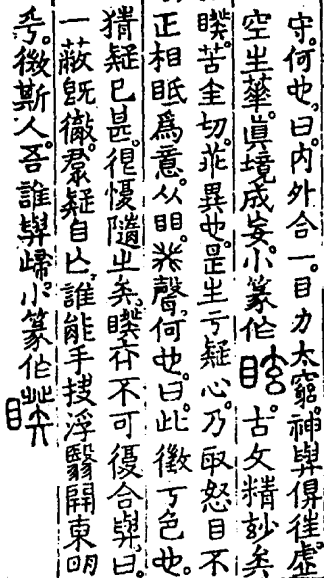 守。何也。曰。内外合一。目力太窮。神與俱徃。虛
空生華。眞境成妄。小篆作。古文精玅矣
睽。苦圭切。乖異也。是生于疑心。乃取怒目不
正相眂爲意。从目。癸聲。何也。曰。此徵于色也。
猜疑已甚。很隨之矣。睽乖不可復合與。曰。
一蔽旣徹。羣疑自亾。誰能手抜浮翳。開東明
乎。微斯人。吾誰與歸。小篆作